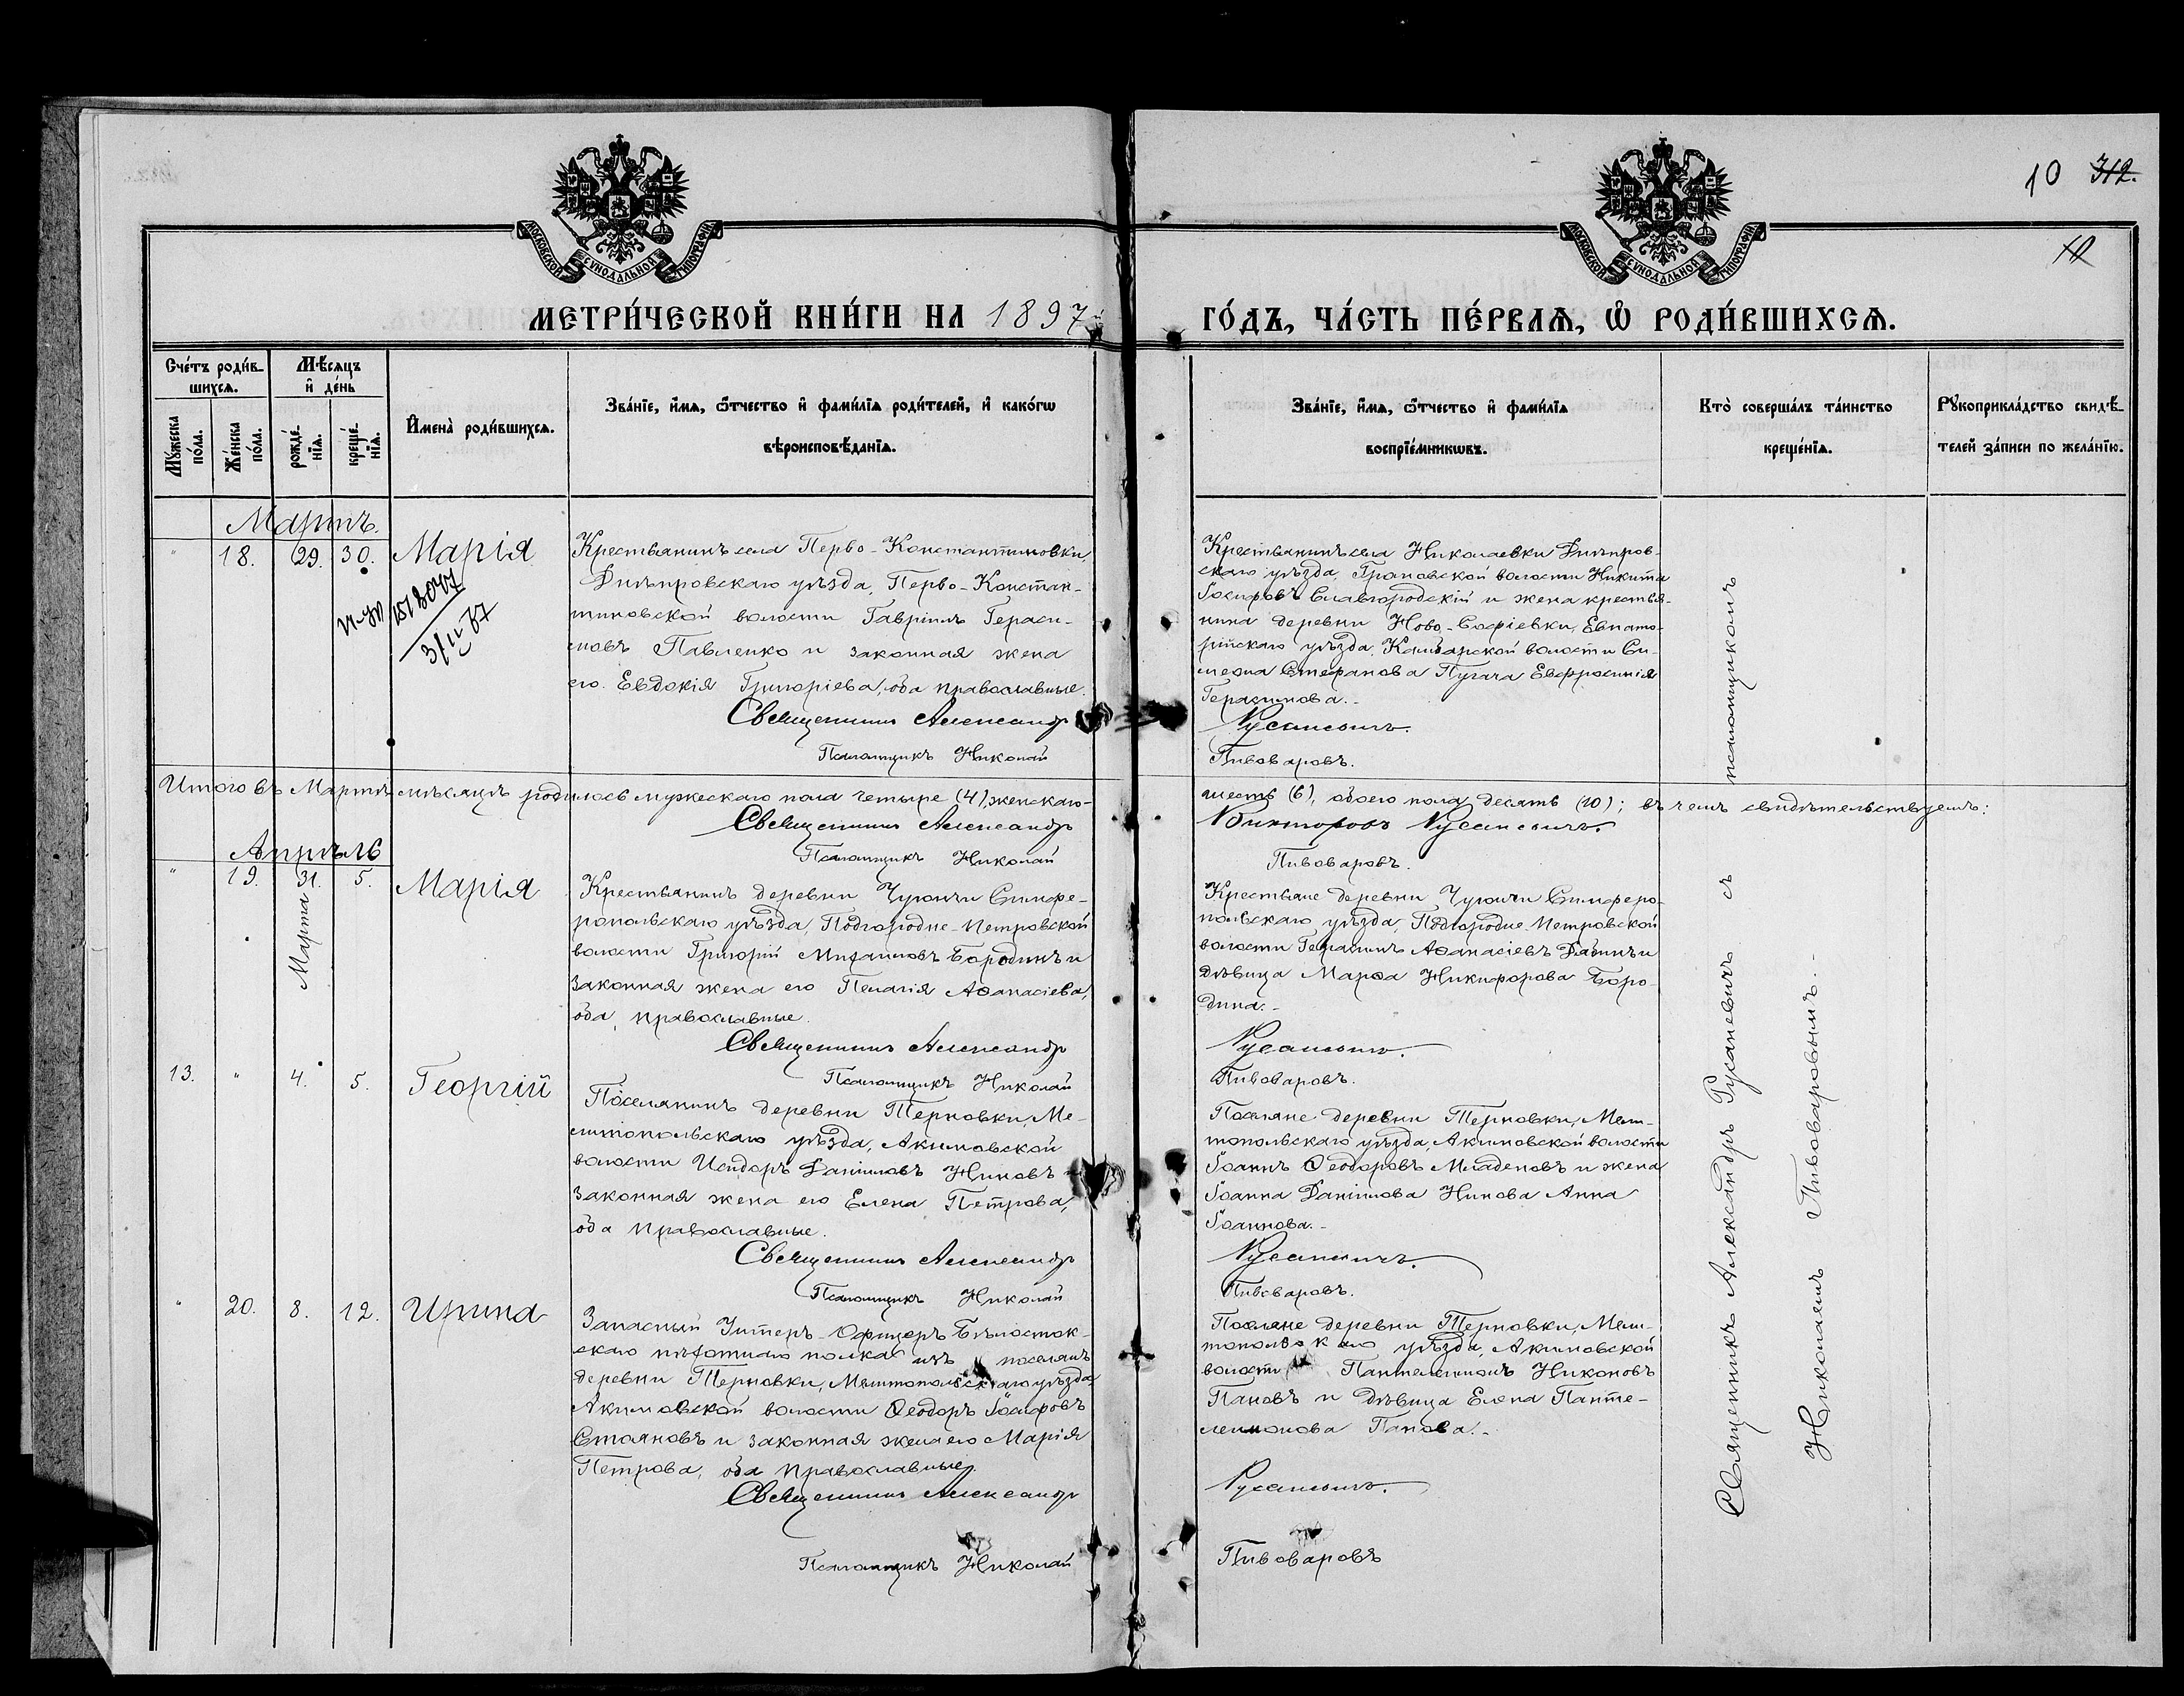 10 312.
10
МОСКОВСКОЙ СУНОДАЛЬНОЙ ТИПОГРАФІИ
МОСКОВСКОЙ СУНОДАЛЬНОЙ ТИПОГРАФІИ
МЕТРИ́ЧЕСКОЙ КНИ́ГИ НА 1897й
ГО́ДЪ, ЧА́СТЬ ПЕ́РВАѦ, Ѡ РОДИ́ВШИХСѦ.
Сче́тъ роди́в-
шихсѧ.
Мѣ́сѧцъ
и҆ де́нь
Мꙋ́жеска
по́ла.
Же́нска
по́ла.
рожде́-
нїѧ.
креще́-
нїѧ.
И҆мена̀ роди́вшихсѧ.
Зва́нїе, и҆́мѧ, ѻ҆́тчество и҆ фами́лїѧ роди́телей, и҆ како́гѡ
вѣроисповѣ́данїѧ.
Зва́нїе, и҆́мѧ, ѻ҆́тчество и҆ фами́лїѧ
воспрїе́мникѡвъ.
Кто̀ соверша́лъ та́инство
креще́нїѧ.
Рꙋкоприкла́дство свидѣ́-
телей за́писи по жела́нїю.
Мартъ.
" 18. 29. 30. Марія
Крестьянинъ села Перво-Константиновки,
Днѣпровскаго уѣзда, Перво-Констан-
тиновской волости Гавріилъ Гераси-
мовъ Павленко и законная жена
его Евдокія Григоріева, оба православные.
Священникъ Александр
Псаломщикъ Николай
Крестьянинъ села Николаевки Днѣпров-
скаго уѣзда, Громовской волости Никита
Іосифовъ Славгородскій и жена крестья-
нина деревни Ново-Софіевки, Евпато-
рійскаго уѣзда, Камбарской волости Си-
меона Стефанова Пугача Евфросинія
Герасимова.-
Русаневичъ.
Пивоваровъ.
Итого въ Мартѣ мѣсяцѣ родилось мужескаго пола четыре (4), женскаго-
шесть (6), обоего пола десять (10); въ чемъ свидѣтельствуемъ:
Священникъ Александр
Викторовъ Русаневичъ.
Псаломщикъ Николай
Пивоваровъ.
Апрѣль
" 19. 31. 5. Марія
Марта
Крестьянинъ деревни Чуюнчи Симфе-
ропольскаго уѣзда, Подгородне-Петровской
волости Григорій Михаиловъ Бородинъ и
законная жена его Пелагія Аѳанасіева,
оба православные.
Священникъ Александр
Псаломщикъ Николай
Крестьяне деревни Чуюнчи Симферо-
польскаго уѣзда, Подгородне-Петровской
волости Герасимъ Аѳанасіевъ и
дѣвица Марѳа Никифорова Боро-
дина.-
Русаневичъ.
Пивоваровъ.
13. " 4. 5. Георгій
Поселянинъ деревни Терновки, Ме-
литопольскаго уѣзда, Акимовской
волости Исидоръ Даніиловъ Ниновъ и
законная жена его Елена Петрова,
оба православные.
Священникъ Александр
Псаломщикъ Николай
Поселяне деревни Терновки, Мели-
топольскаго уѣзда, Акимовской волости
Іоаннъ Ѳеодоровъ Младеновъ и жена
Іоанна Даніилова Нинова Анна
Іоаннова.-
Русаневичъ.
Пивоваровъ.
" 20. 8. 12. Ирина
Запасный Унтеръ-Офицеръ Бѣлосток-
скаго пѣхотнаго полка изъ поселянъ
деревни Терновки, Мелитопольскаго уѣзда
Акимовской волости Ѳеодоръ Іосифовъ
Стояновъ и законная жена его Марія
Петрова, оба православные.
Священникъ Александр
Псаломщикъ Николай
Поселяне деревни Терновки, Мели-
топольскаго уѣзда, Акимовской
волости Пантелеимонъ Никоновъ
Пановъ и дѣвица Елена Панте-
леимонова Панова.-
Русаневичъ.
Пивоваровъ
Священникъ Александръ Русаневичъ съ псаломщикомъ
Николаемъ Пивоваровымъ.-